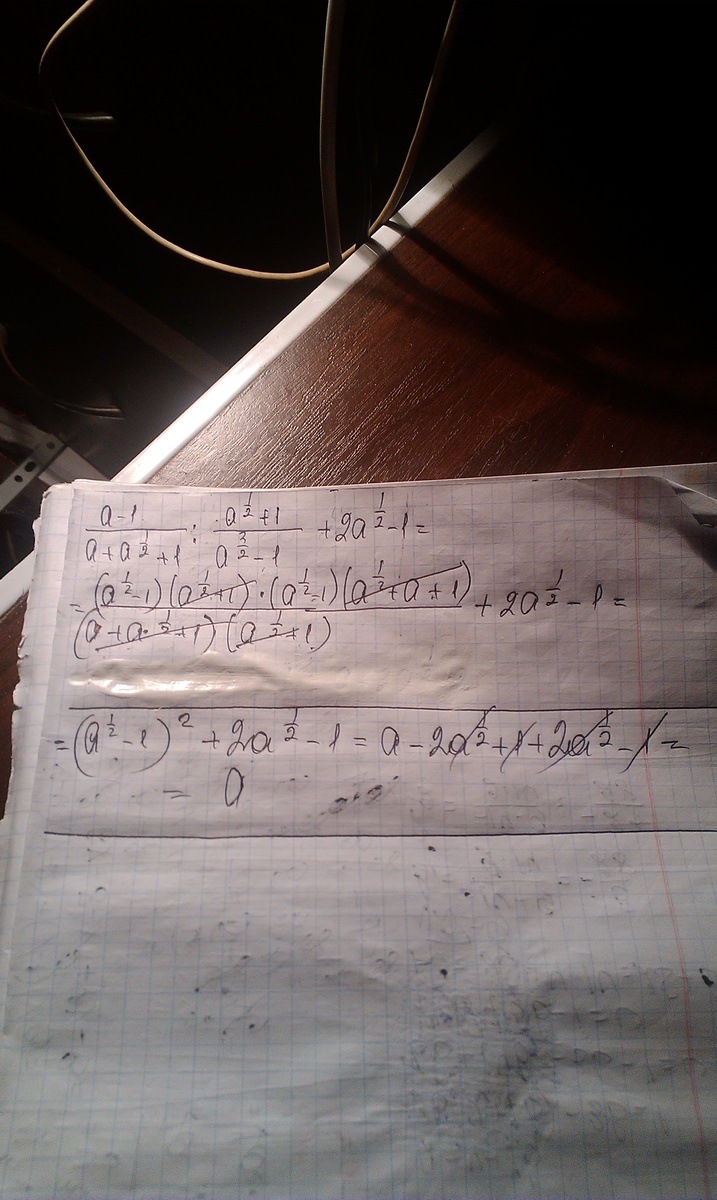 (a-1)/(a+a^(1/2)+1) : (a^(1/2)+1)/(a^(3/2)-1) + 2a^(1/2)-1=
= ((a^(1/2)-1)(a^(1/2)+1)·(a^(1/2)-1)(a^(1/2)+a+1))/((a+a^(1/2)+1)(a^(1/2)+1)) + 2a^(1/2)-1=
=(a^(1/2)-1)^2+2a^(1/2)-1=a-2a^(1/2)+1+2a^(1/2)-1=
= a